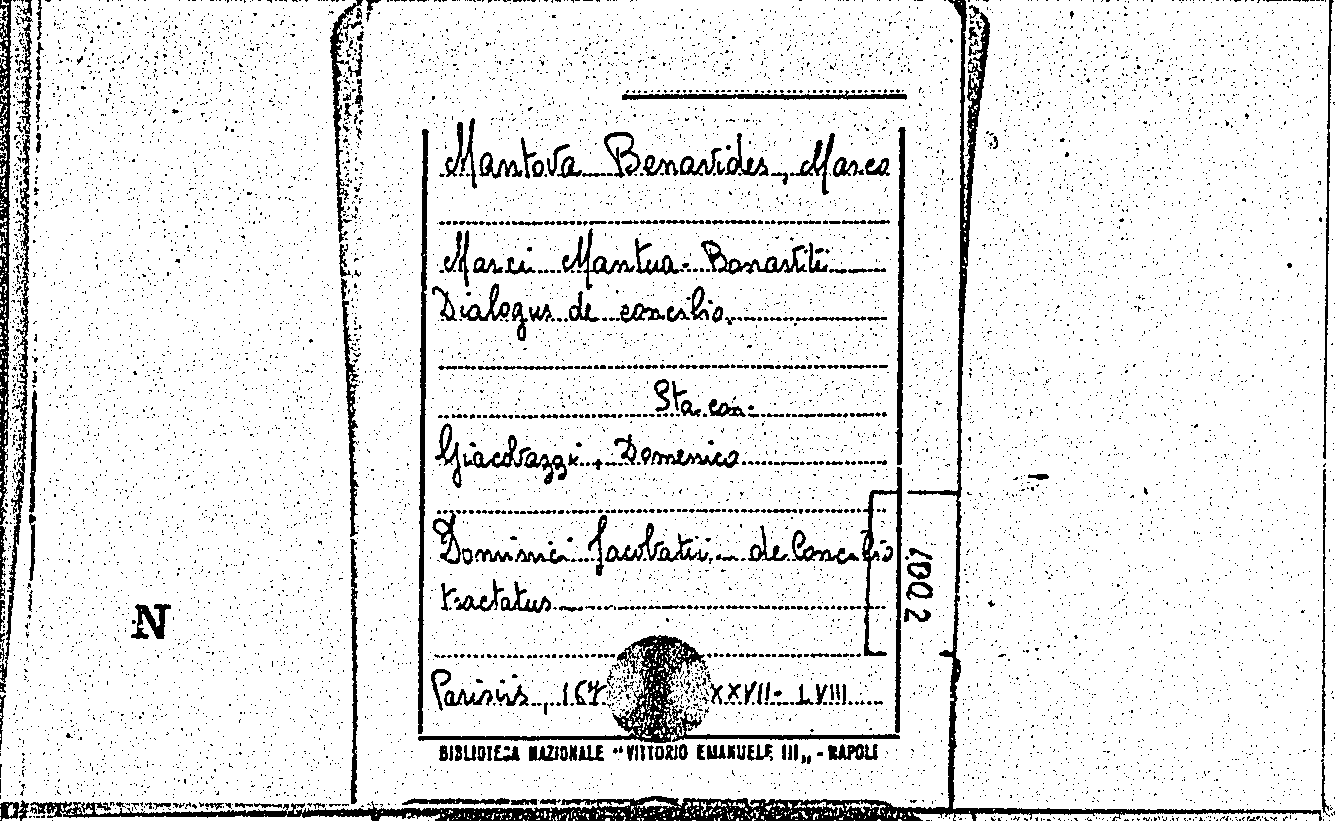 Mantova Benavides, Marco
Marci Mantua-Bonaviti
Dialogus de concilio
Sta con:
Giacobazzi, Domenico
Dominici Jacobatii de Concilio
tractatus
Parisiis, 167 XXVII-LVIII
BIBLIOTECA NAZIONALE "VITTORIO EMANUELE III„ - NAPOLI
N
1002